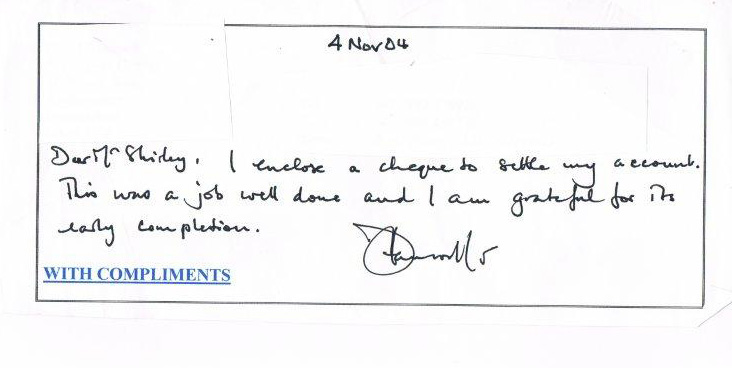 4 Nov 04
Dear Mr Shirley, I enclose a cheque to settle my account.
This was a job well done and I am grateful for its
early completion.
WITH COMPLIMENTS